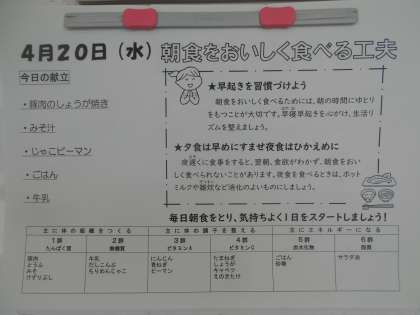 4月20日（水）朝食をおいしく食べる工夫
今日の献立
・豚肉のしょうが焼き
・みそ汁
・じゃこピーマン
・ごはん
・牛乳
★早起きを習慣づけよう
朝食をおいしく食べるためには、朝の時間にゆとり
をもつことが大切です。早寝早起きを心がけ、生活リ
ズムを整えましょう。
★夕食は早めにすませ夜食はひかえめに
夜遅くに食事をすると、翌朝、食欲がわかず、朝食をおい
しく食べられないことがあります。夜食を食べるときは、ホット
ミルクや雑炊など消化のよいものにしましょう。
毎日朝食をとり、気持ちよく1日をスタートしましょう！
主に体の組織をつくる 主に体の調子を整える 主にエネルギーになる
1群 2群 3群 4群 5群 6群
たんぱく質 無機質 ビタミンA ビタミンC 炭水化物 脂質
豚肉 牛乳 にんじん たまねぎ ごはん サラダ油
とうふ だしこんぶ 青ねぎ しょうが 砂糖
みそ ちりめんじゃこ ピーマン キャベツ
けずりぶし えのきたけ